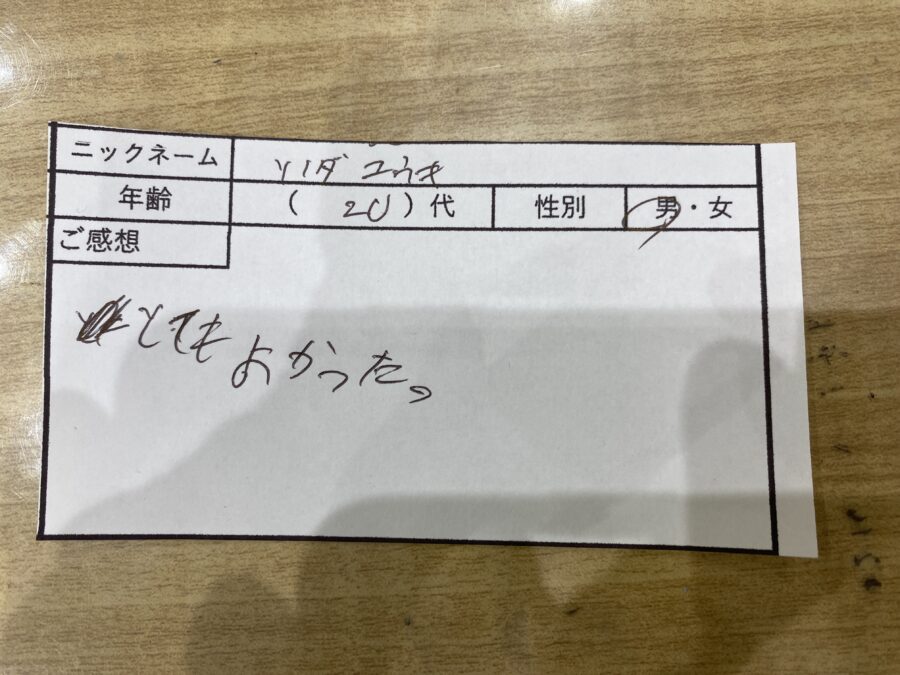 ニックネーム ソノダ ユウキ
年齢 ( 20 ) 代 性別 男・女
ご感想
とても よかった。